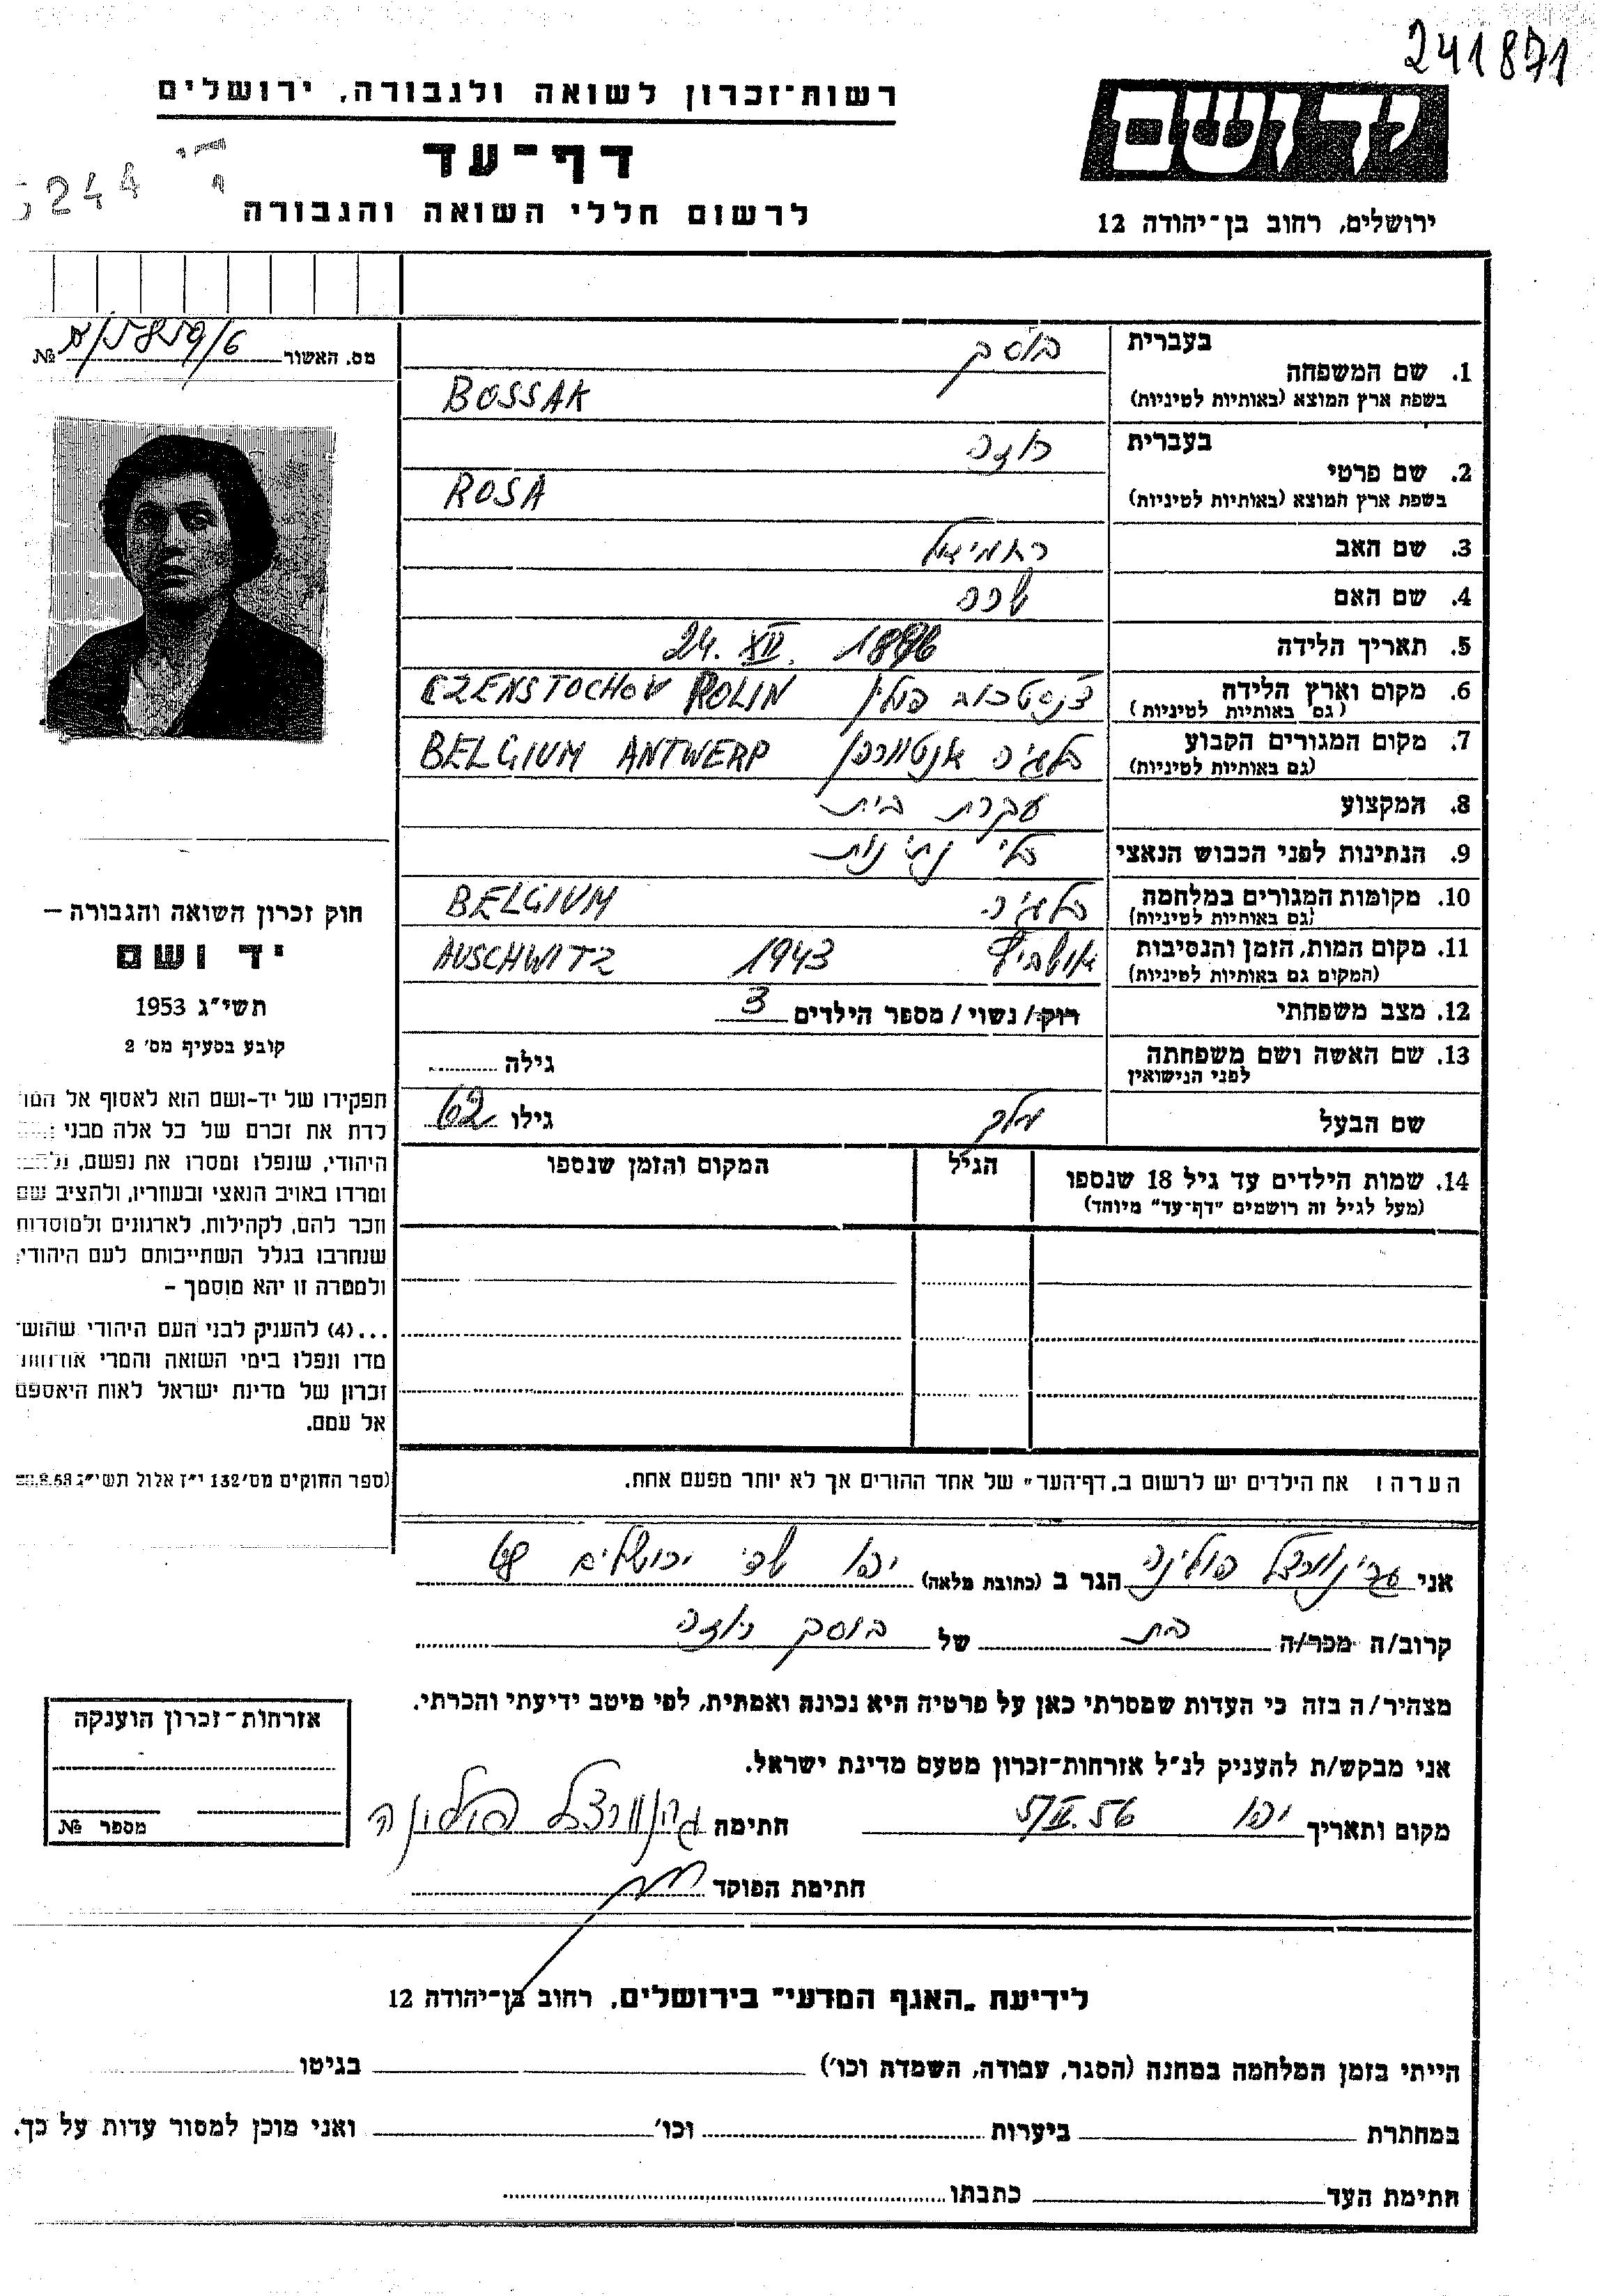 241871
רשות־זכרון לשואה ולגבורה, ירושלים
יד ושם
דף־עד
5244
לרשום חללי השואה והגבורה
ירושלים, רחוב בן־יהודה 12
מס. האשור №
1. שם המשפחה בעברית בוסק
בשפת ארץ המוצא (באותיות לטיניות) BOSSAK
2. שם פרטי בעברית רוזה
בשפת ארץ המוצא (באותיות לטיניות) ROSA
3. שם האב ירחמיאל
4. שם האם
5. תאריך הלידה 24. XII.
6. מקום וארץ הלידה צ'נסטכוב פולין CZENSTOCHOV POLIN
(גם באותיות לטיניות)
7. מקום המגורים הקבוע בלגיה אנטוורפן BELGIUM ANTWERP
(גם באותיות לטיניות)
8. המקצוע עקרת בית
9. הנתינות לפני הכבוש הנאצי בלי נתינות
10. מקומות המגורים במלחמה בלגיה BELGIUM
(גם באותיות לטיניות)
11. מקום המות, הזמן והנסיבות אושביץ 1943 AUSCHWITZ
(המקום גם באותיות לטיניות)
12. מצב משפחתי רוק/ נשוי / מספר הילדים 3
13. שם האשה ושם משפחתה גילה
לפני הנישואין
שם הבעל גילו 62
14. שמות הילדים עד גיל 18 שנספו הגיל המקום והזמן שנספו
(מעל לגיל זה רושמים "דף־עד" מיוחד)
חוק זכרון השואה והגבורה –
יד ושם
תשי"ג 1953
קובע בסעיף מס' 2
תפקידו של יד-ושם הוא לאסוף אל המו
לדת את זכרם של כל אלה מבני
היהודי, שנפלו ומסרו את נפשם,
ומרדו באויב הנאצי ובעוזריו, ולהציב שם
וזכר להם, לקהילות, לארגונים ולמוסדות
שנחרבו בגלל השתייכותם לעם היהודי,
ולמטרה זו יהא מוסמך –
...(4) להעניק לבני העם היהודי שהוש־
מדו ונפלו בימי השואה והמרי אזרחות
זכרון של מדינת ישראל לאות היאספם
אל עמם.
(ספר החוקים מס' 132 י"ז אלול תשי"ג
הערה: את הילדים יש לרשום ב„דף־העד" של אחד ההורים אך לא יותר מפעם אחת.
אני גרינוורצל פולינה הגר ב (כתובת מלאה) יפו שד' ירושלים 68
קרוב/ה מכר/ה בת של בוסק רוזה
מצהיר/ה בזה כי העדות שמסרתי כאן על פרטיה היא נכונה ואמתית, לפי מיטב ידיעתי והכרתי.
אני מבקש/ת להעניק לנ"ל אזרחות־זכרון מטעם מדינת ישראל.
מקום ותאריך יפו חתימה גרינוורצל פולינה
חתימת הפוקד
אזרחות־זכרון הוענקה
מספר №
לידיעת „האגף המדעי" בירושלים, רחוב בן־יהודה 12
הייתי בזמן המלחמה במחנה (הסגר, עבודה, השמדה וכו') בגיטו
במחתרת ביערות וכו' ואני מוכן למסור עדות על כך.
חתימת העד כתבתו